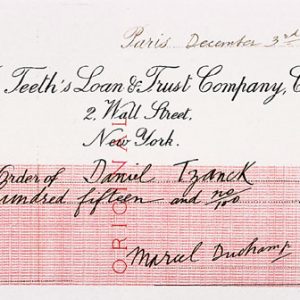 Paris December 3rd
Teeth's Loan & Trust Company,
2, Wall Street,
New York.
Order of Daniel Tzanck
undred fifteen and no/100
ORIGINAL
Marcel Duchamp